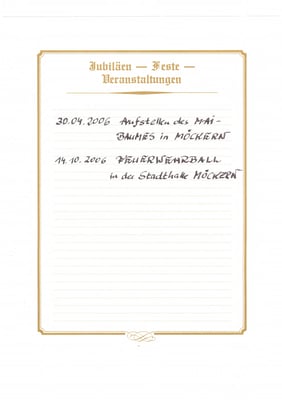 Jubiläen — Feste —
Veranstaltungen
30.04.2006 Aufstellen des MAI-
BAUMES in MÖCKERN
14.10.2006 FEUERWEHRBALL
in der Stadthalle MÖCKERN